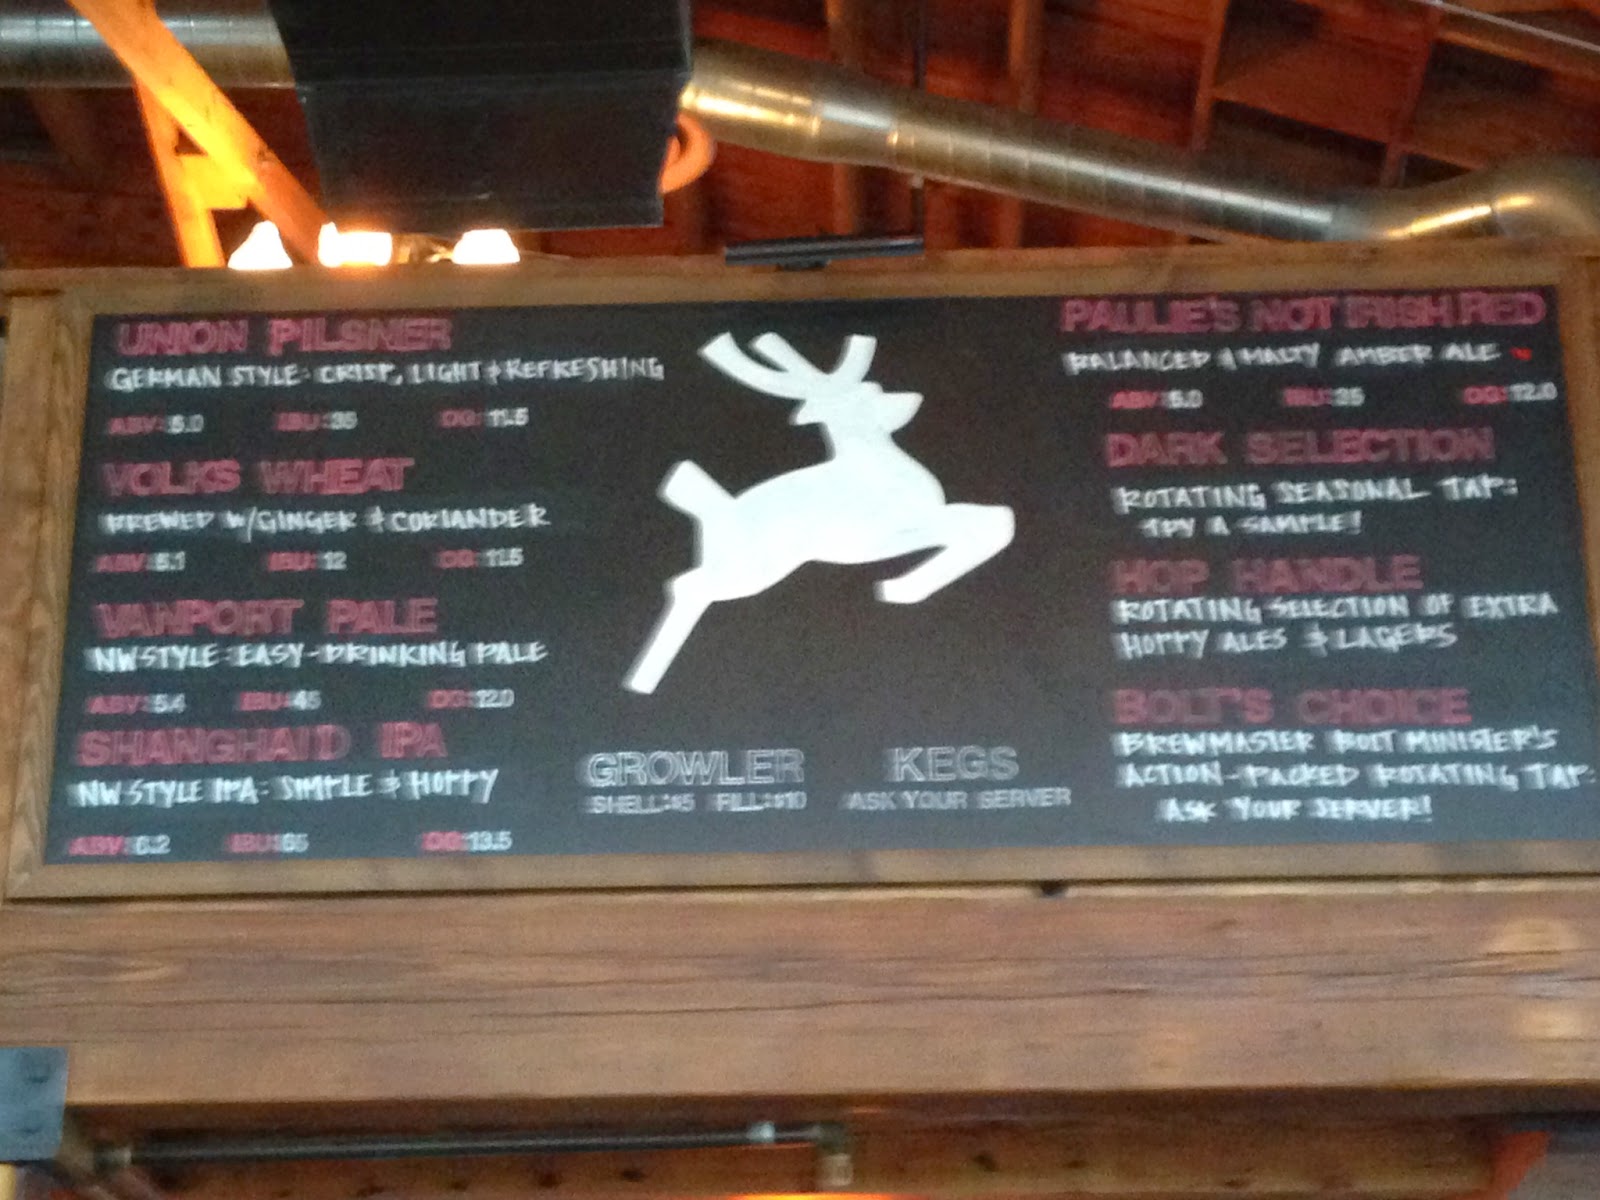 UNION PILSNER
GERMAN STYLE: CRISP, LIGHT & REFRESHING
ABV: 5.0 IBU: 35 OG: 11.5
VOLKS WHEAT
BREWED W/GINGER & CORIANDER
ABV: 5.1 IBU: 12 OG: 11.5
VANPORT PALE
NW STYLE: EASY-DRINKING PALE
ABV: 5.4 IBU: 45 OG: 12.0
SHANGHAI'D IPA
NW STYLE IPA: SIMPLE & HOPPY
ABV: 6.2 IBU: 65 OG: 13.5
GROWLER
SHELL: $5 FILL: $10
KEGS
ASK YOUR SERVER
PAULIE'S NOT IRISH RED
BALANCED & MALTY AMBER ALE
ABV: 5.0 IBU: 35 OG: 12.0
DARK SELECTION
ROTATING SEASONAL TAP:
TRY A SAMPLE!
HOP HANDLE
ROTATING SELECTION OF EXTRA
HOPPY ALES & LAGERS
BOLT'S CHOICE
BREWMASTER BOLT MINISTER'S
ACTION-PACKED ROTATING TAP:
ASK YOUR SERVER!